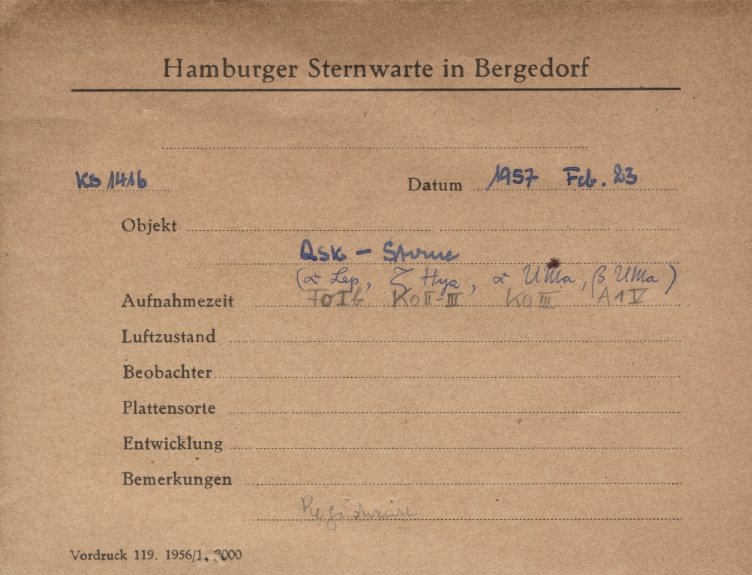 Hamburger Sternwarte in Bergedorf
KS 1416 Datum 1957 Feb. 23
Objekt
Qsk - Sterne
(α Lep, ζ Hya, α UMa, β UMa)
Aufnahmezeit F0Ib K0II-III K0III A1V
Luftzustand
Beobachter
Plattensorte
Entwicklung
Bemerkungen
Vordruck 119. 1956/1. 2000